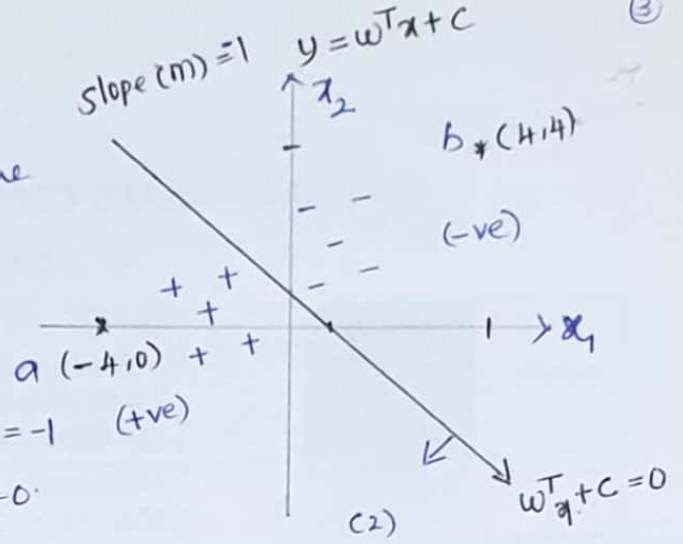 3
slope (m) = -1
y = wᵀx + c
x₂
b * (4,4)
(-ve)
x₁
a (-4,0)
= -1
(+ve)
-0
wᵀx + c = 0
(2)